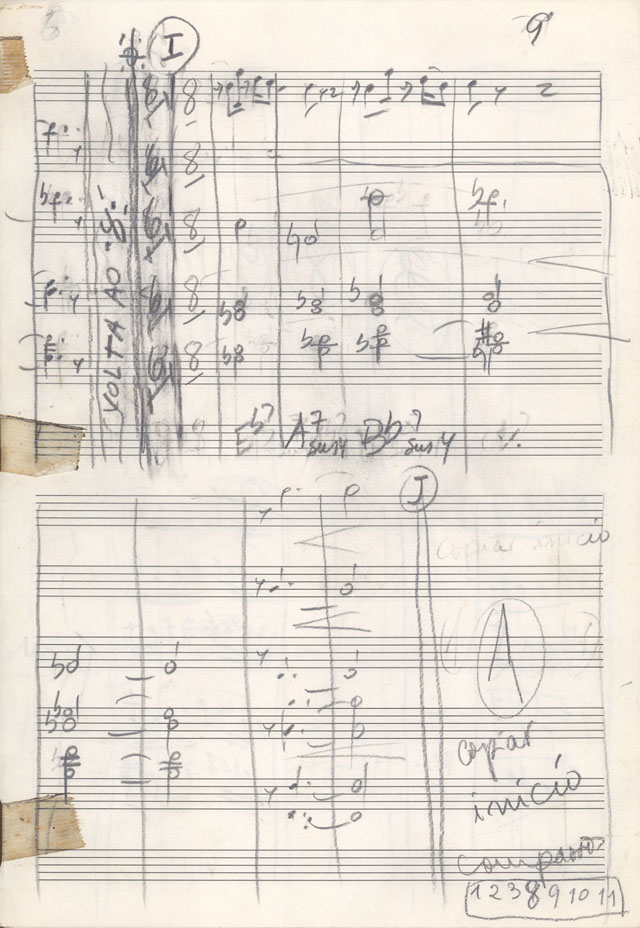 9
I
VOLTA AO
8
8
8
8
8
Eb7 A7sus4 Bb7sus4
J
copiar início
A
copiar
início
compassos
1 2 3 8 9 10 11